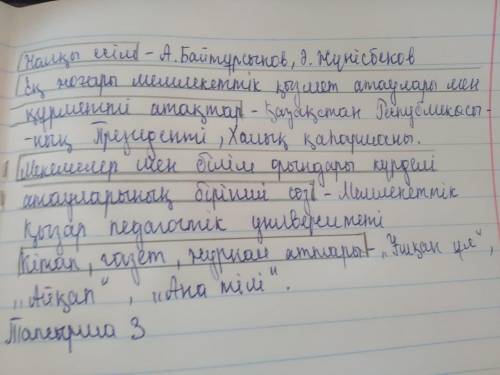 Жалқы есім - А.Байтұрсынов, Ә.Жүнісбеков
Ең жоғары мемлекеттік қызмет атаулары мен
құрметті атақтар - Қазақстан Республикасы-
-ның Президенті, Халық қаһарманы.
Мекемелер мен білім орындары күрделі
атауларының бірінші сөзі - Мемлекеттік
қыздар педагогтік университеті
Кітап, газет, журнал аттары - "Ұшқан ұя",
"Айқап", "Ана тілі".
Тапсырма 3